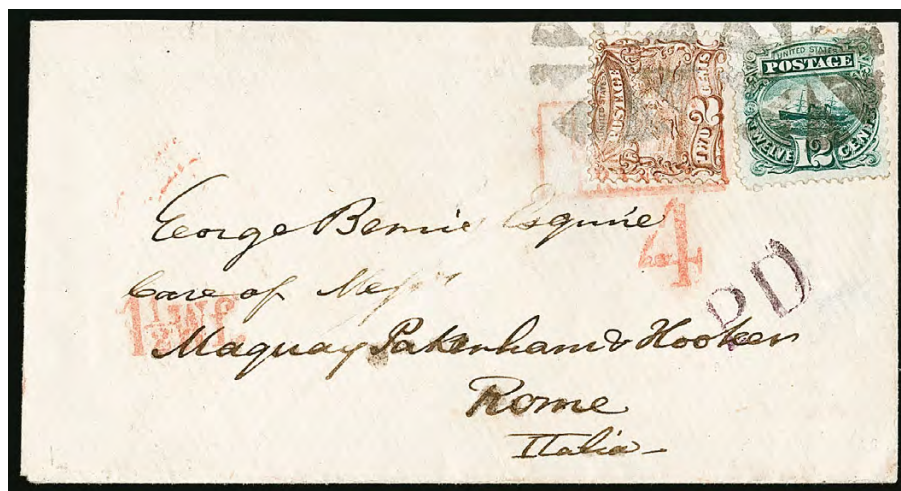 UNITED STATES
POSTAGE
TWO 2 CENTS
UNITED STATES
POSTAGE
TWELVE 12 CENTS
4
PD
George Bemis Esquire
Care of Mess
Maquay Pakenham & Hooker
Rome
Italia